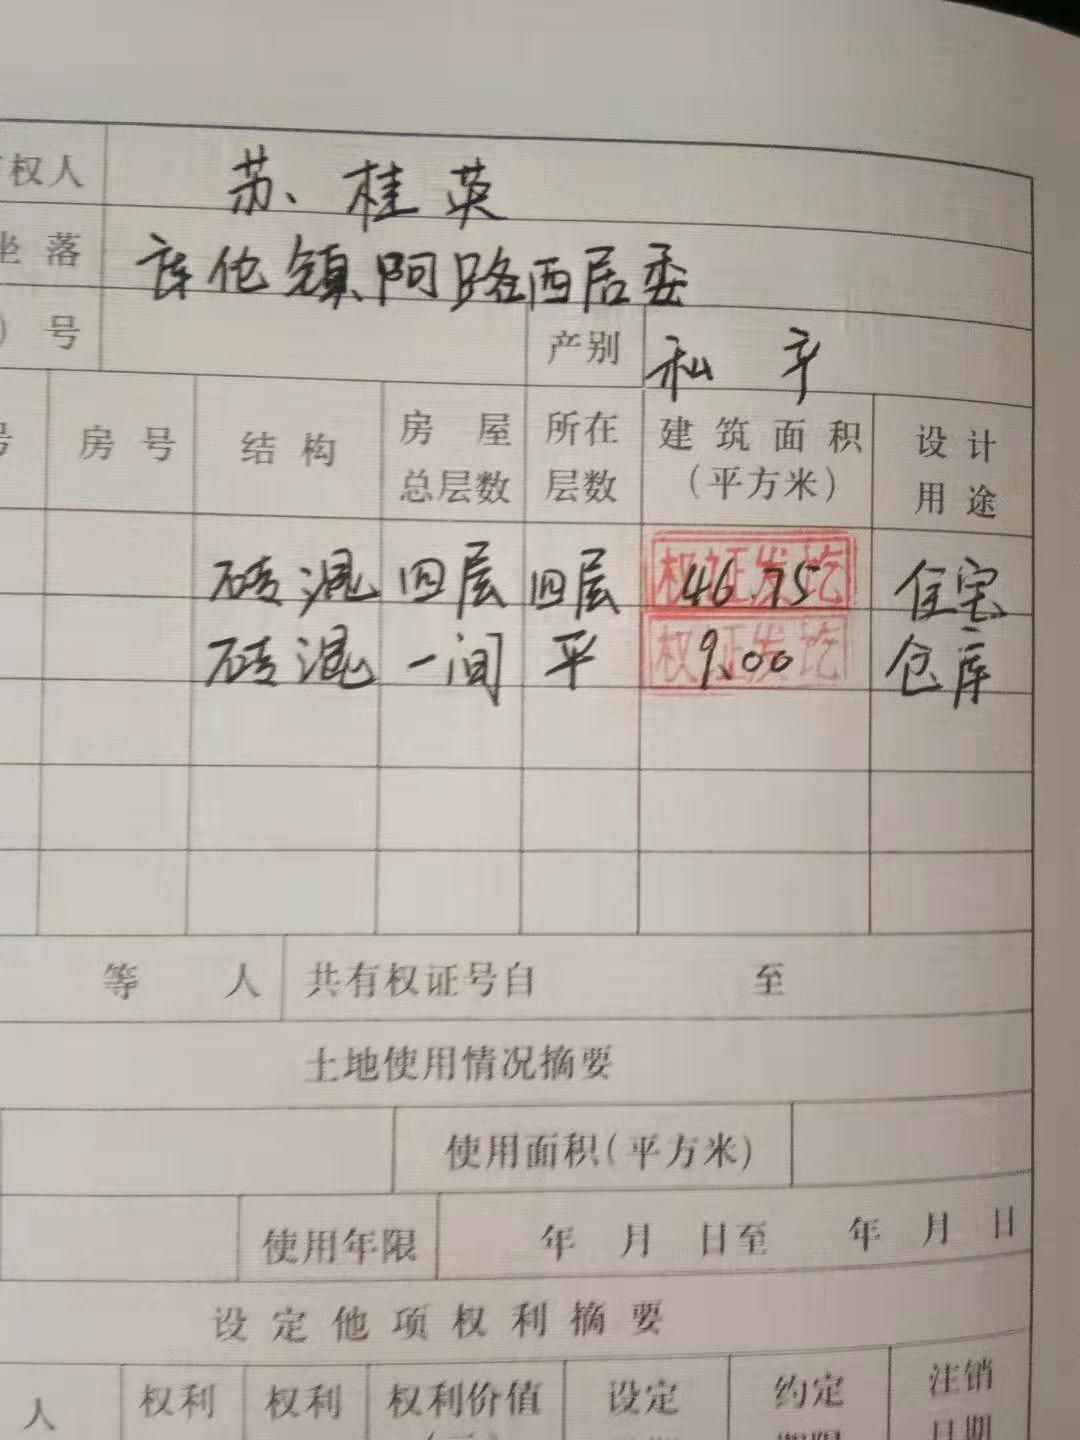 权人 苏、桂英
坐落 库伦镇阿路西居委
）号 产别 私产
号 房号 结构 房屋总层数 所在层数 建筑面积（平方米） 设计用途
砖混 四层 四层 46.75 住宅
权证发讫
砖混 一间 平 9.00 仓库
权证发讫
等 人 共有权证号自 至
土地使用情况摘要
使用面积（平方米）
使用年限 年 月 日至 年 月 日
设定他项权利摘要
人 权利 权利 权利价值 设定 约定 注销
期限 日期